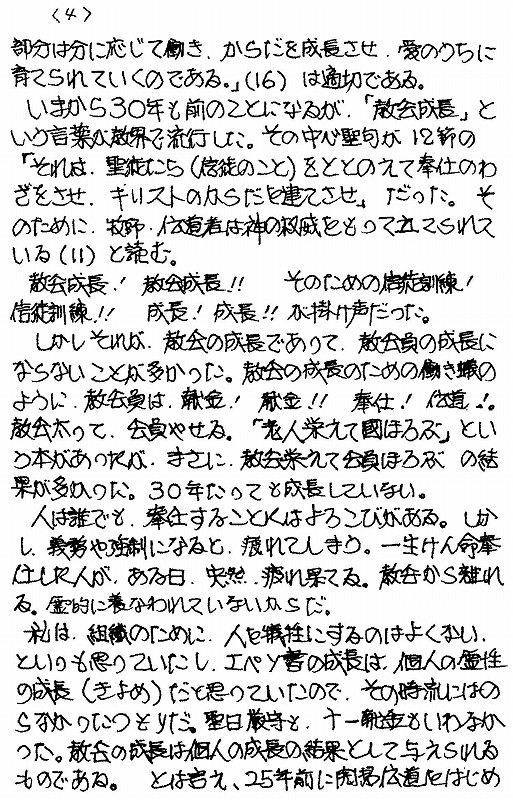 〈4〉
部分は分に応じて働き、からだを成長させ、愛のうちに
育てられていくのである。」(16) は適切である。
いまから30年も前のことになるが、「教会成長」と
いう言葉が教界で流行した。その中心聖句が12節の
「それは、聖徒たち(信徒のこと)をととのえて奉仕のわ
ざをさせ、キリストのからだを建てさせ」だった。そ
のために、牧師・伝道者は神の権威をもって立てられて
いる(11)と読む。
教会成長! 教会成長!! そのための信徒訓練!
信徒訓練!! 成長! 成長!! が掛け声だった。
しかしそれが、教会の成長であって、教会員の成長に
ならないことが多かった。教会の成長のための働き蟻の
ように、教会員は、献金! 献金!! 奉仕! 伝道!。
教会太って、会員やせる。「老人栄えて國ほろぶ」とい
う本があったが、まさに、教会栄えて会員ほろぶ の結
果が多かった。30年たっても成長していない。
人は誰でも、奉仕することにはよろこびがある。しか
し、義務や強制になると、疲れてしまう。一生けん命奉
仕した人が、ある日、突然、疲れ果てる。教会から離れ
る。霊的に養なわれていないからだ。
私は、組織のために、人を犠牲にするのはよくない、
といつも思っていたし、エペソ書の成長は、個人の霊性
の成長(きよめ)だと思っていたので、その時流にはの
らなかったつもりだ。聖日厳守と、十一献金もいわなか
った。教会の成長は個人の成長の結果として与えられる
ものである。 とは言え、25年前に開拓伝道をはじめ